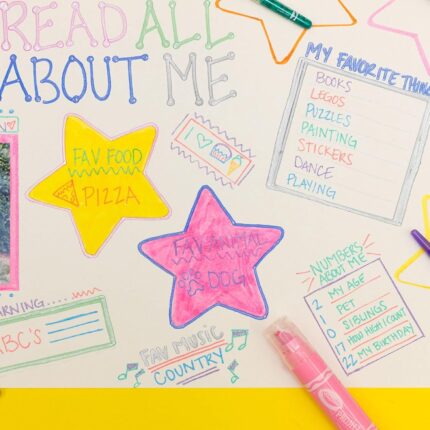 READ ALL
ABOUT ME
MY FAVORITE THING
BOOKS
LEGOS
PUZZLES
PAINTING
STICKERS
DANCE
PLAYING
I
FAV FOOD
PIZZA
FAV ANIMAL
DOG
NUMBERS
ABOUT ME
2 MY AGE
1 PET
0 SIBLINGS
17 HOW HIGH I COUNT
22 MY BIRTHDAY
ARNING....
ABC'S
FAV MUSIC
COUNTRY